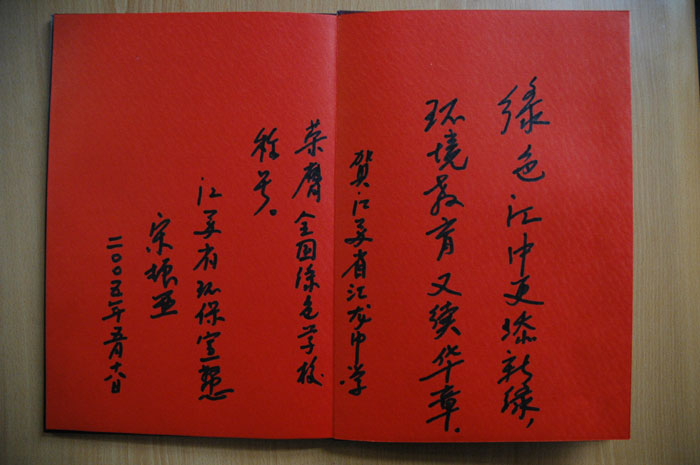 绿色汇中更添新绿，
环境教育又续华章．
贺江苏省汇龙中学
荣膺全国绿色学校
称号。
江苏省环保宣
宋振亚
二〇〇五年五月十八日